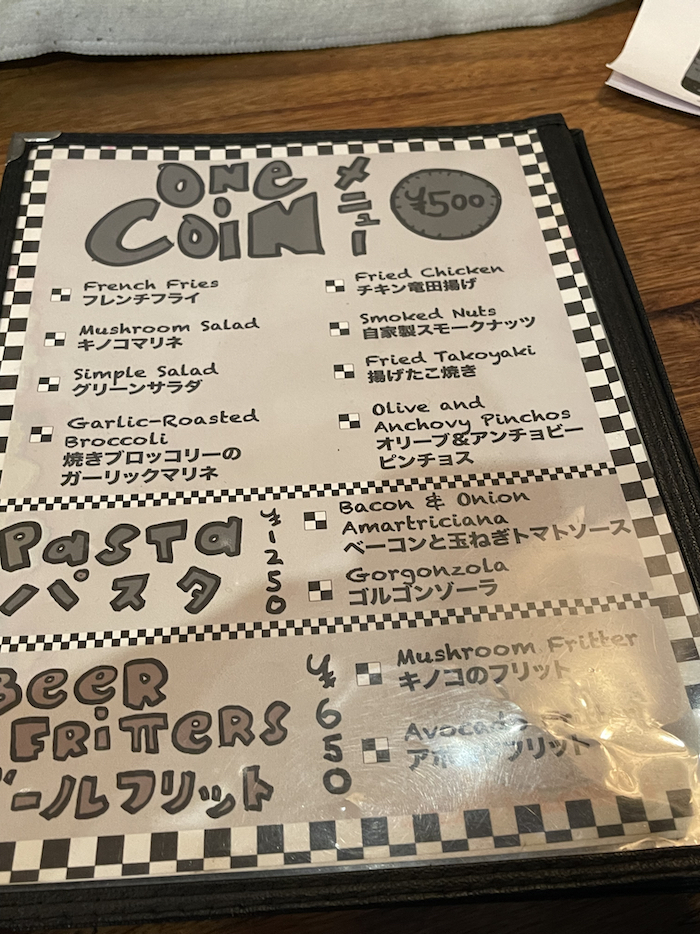 ONE COIN メニュー ¥500
French Fries
フレンチフライ
Mushroom Salad
キノコマリネ
Simple Salad
グリーンサラダ
Garlic-Roasted
Broccoli
焼きブロッコリーの
ガーリックマリネ
Fried Chicken
チキン竜田揚げ
Smoked Nuts
自家製スモークナッツ
Fried Takoyaki
揚げたこ焼き
Olive and
Anchovy Pinchos
オリーブ&アンチョビー
ピンチョス
Pasta
パスタ
¥1250
Bacon & Onion
Amartriciana
ベーコンと玉ねぎトマトソース
Gorgonzola
ゴルゴンゾーラ
Beer
Fritters
ビールフリット
¥650
Mushroom Fritter
キノコのフリット
Avocado
フリット